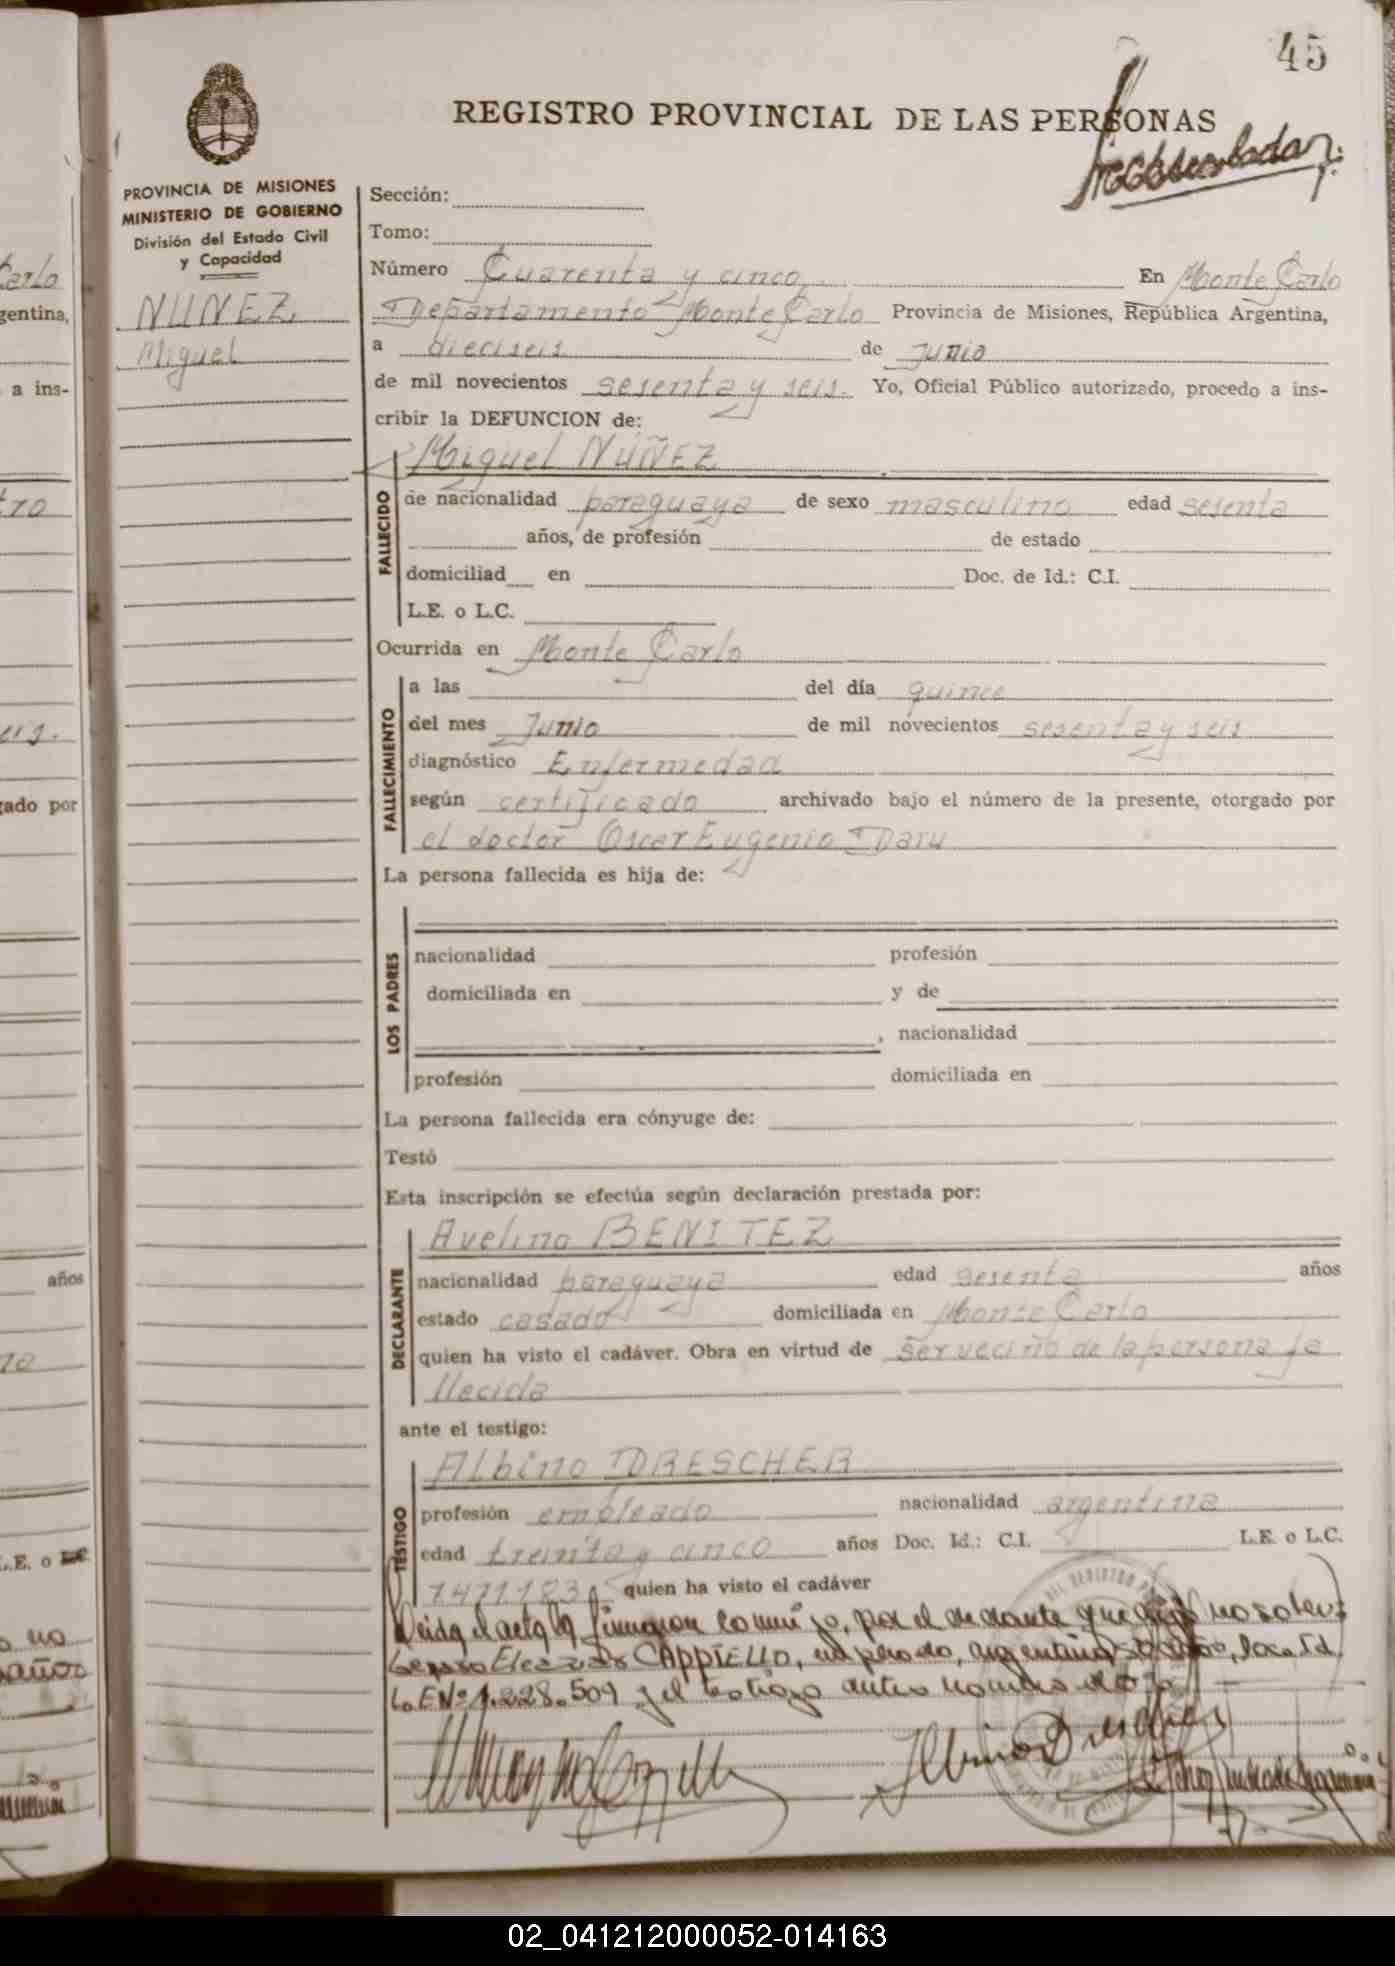 45
REGISTRO PROVINCIAL DE LAS PERSONAS
PROVINCIA DE MISIONES
MINISTERIO DE GOBIERNO
División del Estado Civil
y Capacidad
NUÑEZ
Miguel
Sección:
Tomo:
Número Cuarenta y cinco. En Monte Carlo
Departamento Monte Carlo Provincia de Misiones, República Argentina,
a dieciseis de Junio
de mil novecientos sesenta y seis. Yo, Oficial Público autorizado, procedo a ins-
cribir la DEFUNCION de:
Miguel NUÑEZ
FALLECIDO
de nacionalidad paraguaya de sexo masculino edad sesenta
años, de profesión de estado
domiciliad en Doc. de Id.: C.I.
L.E. o L.C.
Ocurrida en Monte Carlo
FALLECIMIENTO
a las del día quince
del mes Junio de mil novecientos sesenta y seis
diagnóstico Enfermedad
según certificado archivado bajo el número de la presente, otorgado por
el doctor Oscar Eugenio Daru
La persona fallecida es hija de:
LOS PADRES
nacionalidad profesión
domiciliada en y de
, nacionalidad
profesión domiciliada en
La persona fallecida era cónyuge de:
Testó
Esta inscripción se efectúa según declaración prestada por:
DECLARANTE
Avelino BENITEZ
nacionalidad paraguaya edad sesenta años
estado casado domiciliada en Monte Carlo
quien ha visto el cadáver. Obra en virtud de ser vecino de la persona fa
llecida
ante el testigo:
TESTIGO
Albino DRESCHER
profesión empleado nacionalidad argentina
edad treinta y cinco años Doc. Id.: C.I. L.E. o L.C.
quien ha visto el cadáver
Leida el acta la firman conmigo, por el declarante
CAPPIELLO,
L.E Nº 1.228.509 y el testigo antes nombrado
02_041212000052-014163